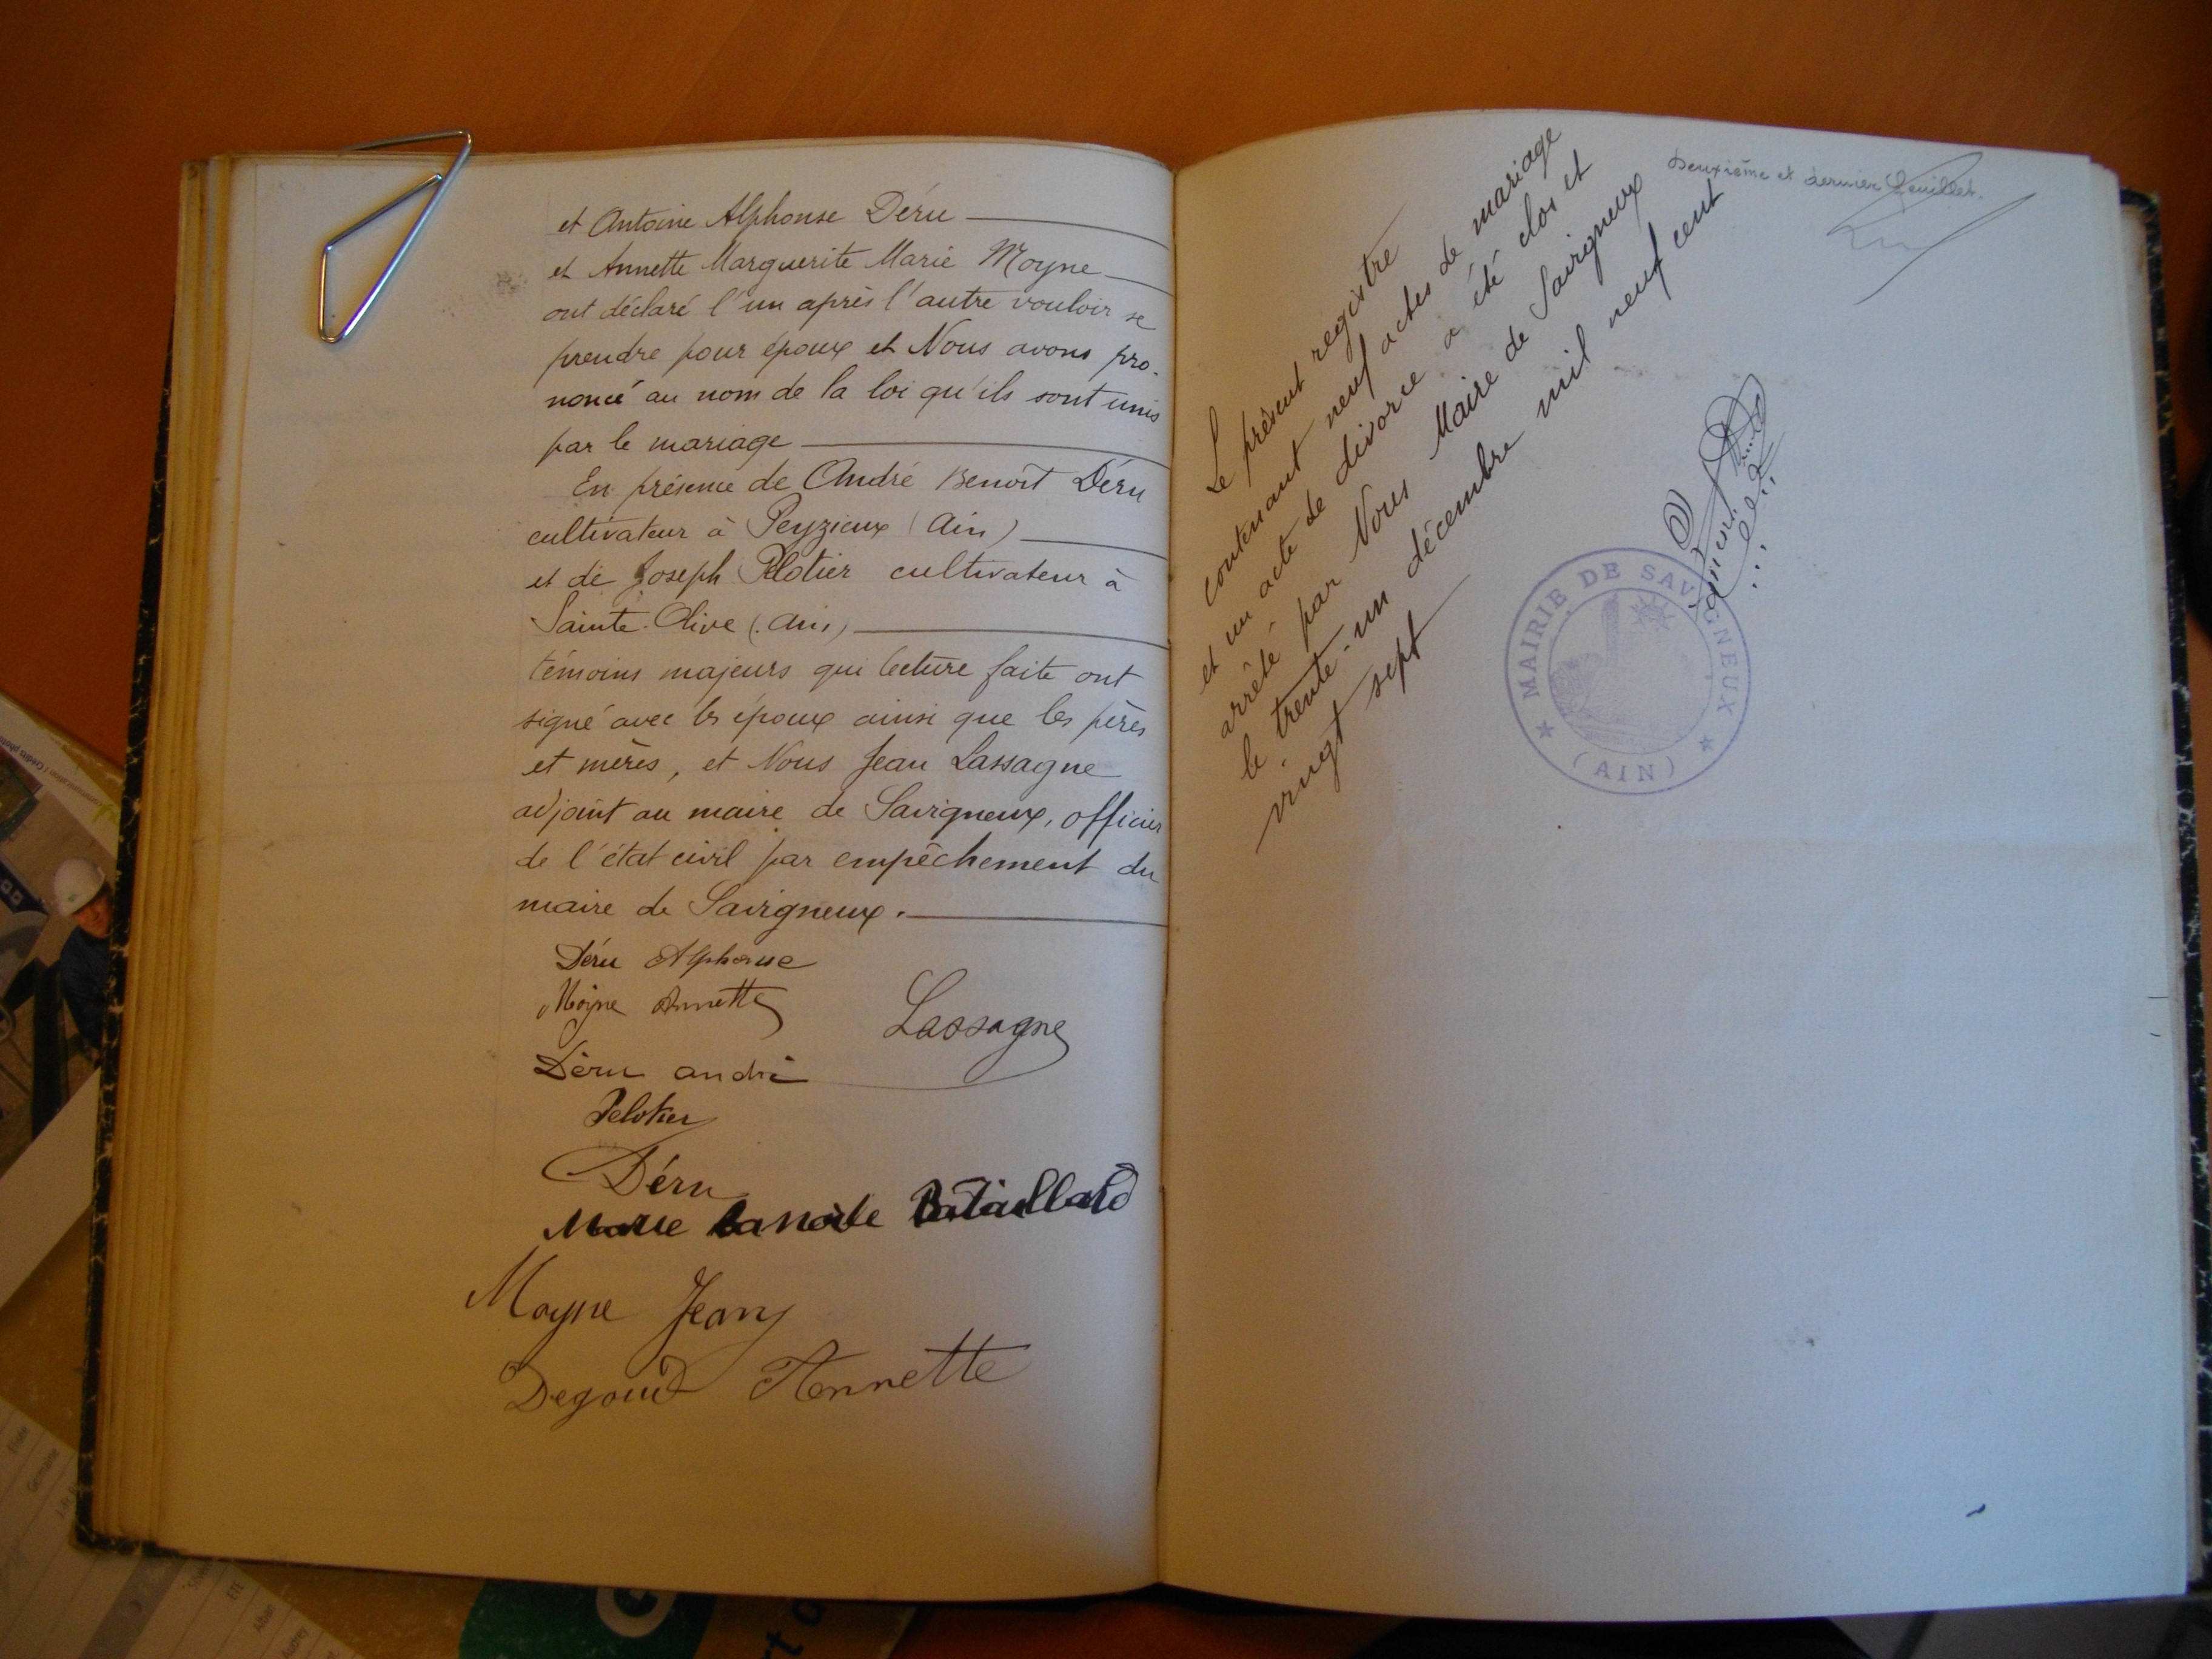 et Antoine Alphonse Déru
et Annette Marguerite Marie Moyne
ont déclaré l'un après l'autre vouloir se
prendre pour époux et Nous avons pro-
noncé au nom de la loi qu'ils sont unis
par le mariage
En présence de André Benoît Déru
cultivateur à Peyzieux (Ain)
et de Joseph Pelotier cultivateur à
Sainte-Olive (Ain)
témoins majeurs qui lecture faite ont
signé avec les époux ainsi que les pères
et mères, et Nous Jean Lassagne
adjoint au maire de Savigneux, officier
de l'état civil par empêchement du
maire de Savigneux.
Déru Alphonse
Moyne Annette
Lassagne
Déru andré
Pelotier
Déru
Marie Bataillard
Moyne Jean
Degoud Annette
Deuxième et dernier feuillet.
Le présent registre
contenant neuf actes de mariage
et un acte de divorce a été clos et
arrêté par Nous Maire de Savigneux
le trente-un décembre mil neuf cent
vingt sept
MAIRIE DE SAVIGNEUX
(AIN)